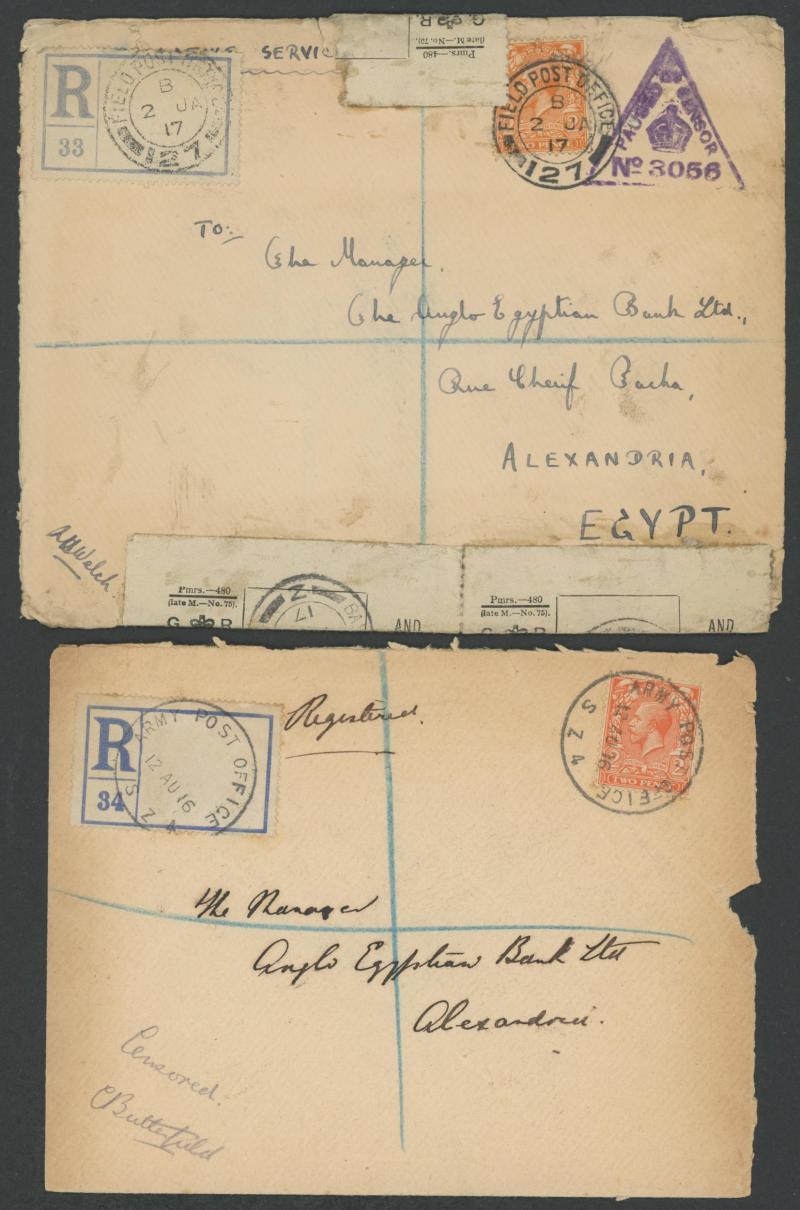 SERVIC
G R.
Pmrs.—480
(late M.—No. 75).
R
33
FIELD POST OFFICE
B
2 JA
17
127
FIELD POST OFFICE
B
2 JA
17
127
TWO PE
PASSED BY CENSOR
No 3056
TO:-
The Manager.
The Anglo Egyptian Bank Ltd.,
Rue Cherif Pacha,
ALEXANDRIA,
EGYPT.
AHWelch.
Pmrs.—480
(late M.—No. 75).
G R
17
BA
AND
Pmrs.—480
(late M.—No. 75).
G R
AND
R
34
ARMY POST OFFICE
12 AU 16
S Z 4
Registered.
ARMY POST OFFICE
12 AU 16
S Z 4
TWO PEN
The Manager
Anglo Egyptian Bank Ltd
Alexandria.
Censored.
CButterfield